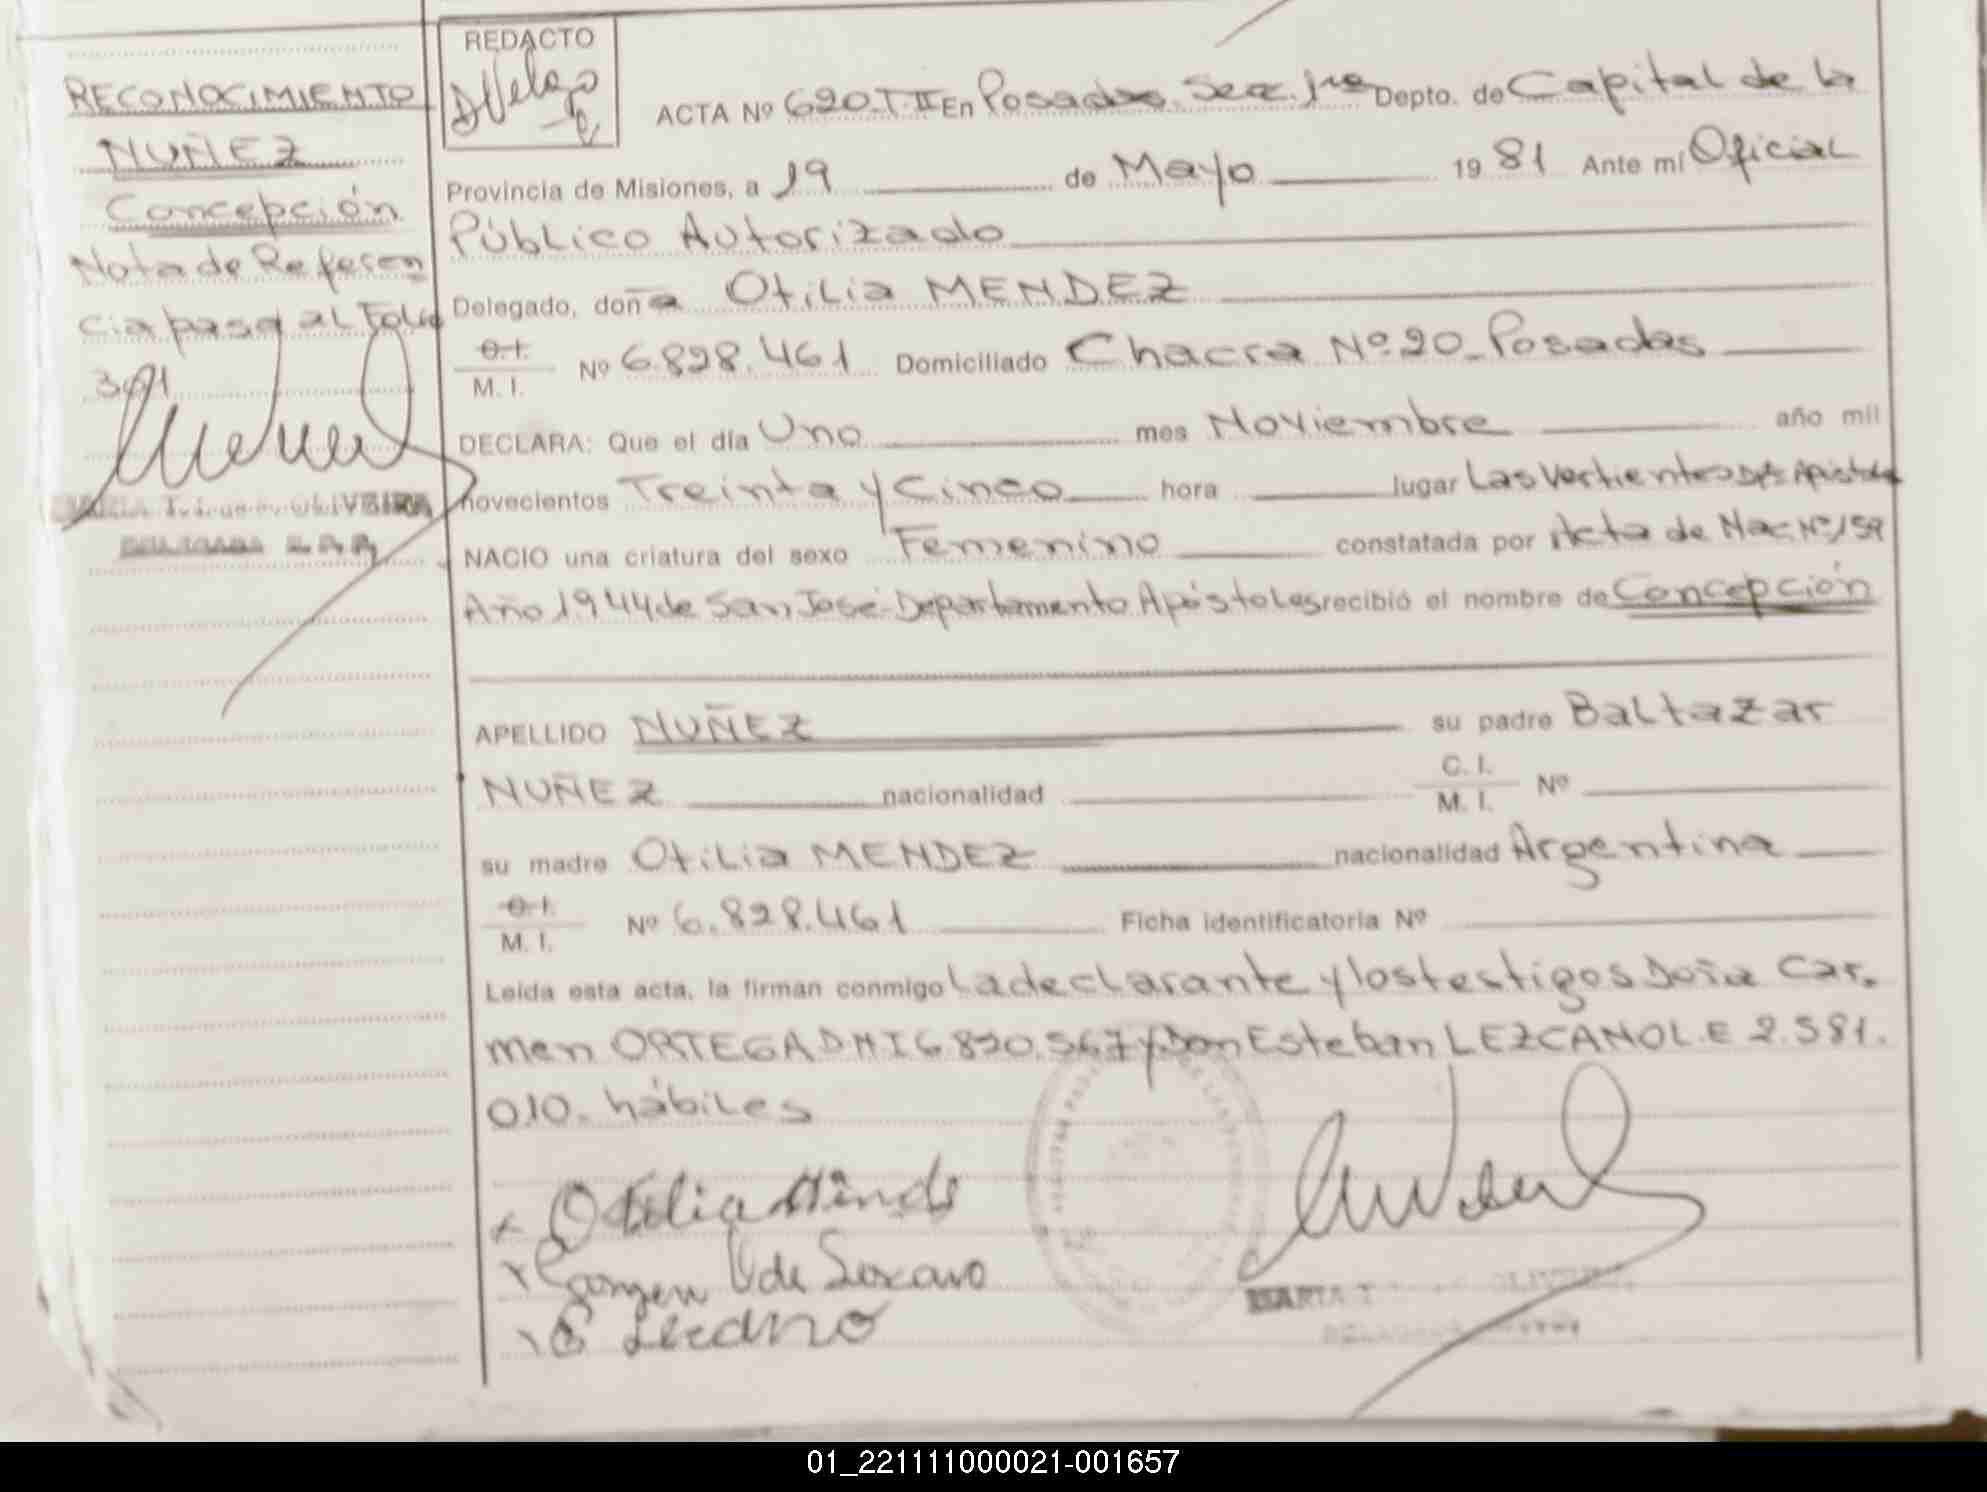 RECONOCIMIENTO
NUÑEZ
Concepción
Nota de Referen
cia pasa al Folio
DELEGADA
REDACTO
ACTA Nº 620.T.II En Posadas. Secc. 1ra Depto. de Capital de la
Provincia de Misiones, a 19 de Mayo 19 81 Ante mí Oficial
Público Autorizado
Delegado, doña Otilia MENDEZ
C.I. M. I. Nº 6.828.461 Domiciliado Chacra Nº 20_Posadas
DECLARA: Que el día Uno mes Noviembre año mil
novecientos Treinta y Cinco hora lugar Las Vertientes Dpto Apóstoles
NACIO una criatura del sexo Femenino constatada por Acta de Nac. Nº 159
Año 1944 de San José Departamento Apóstoles recibió el nombre de Concepción
APELLIDO NUÑEZ su padre Baltazar
NUÑEZ nacionalidad C. I. M. I. Nº
su madre Otilia MENDEZ nacionalidad Argentina
C.I. M. I. Nº 6.828.461 Ficha identificatoria Nº
Leída esta acta, la firman conmigo la declarante y los testigos Doña Car.
men ORTEGA DNI 6.820.567 y Don Esteban LEZCANO L.E 2.581.
010. hábiles
Otilia
de
MARIA T OLIVEIRA
01_221111000021-001657